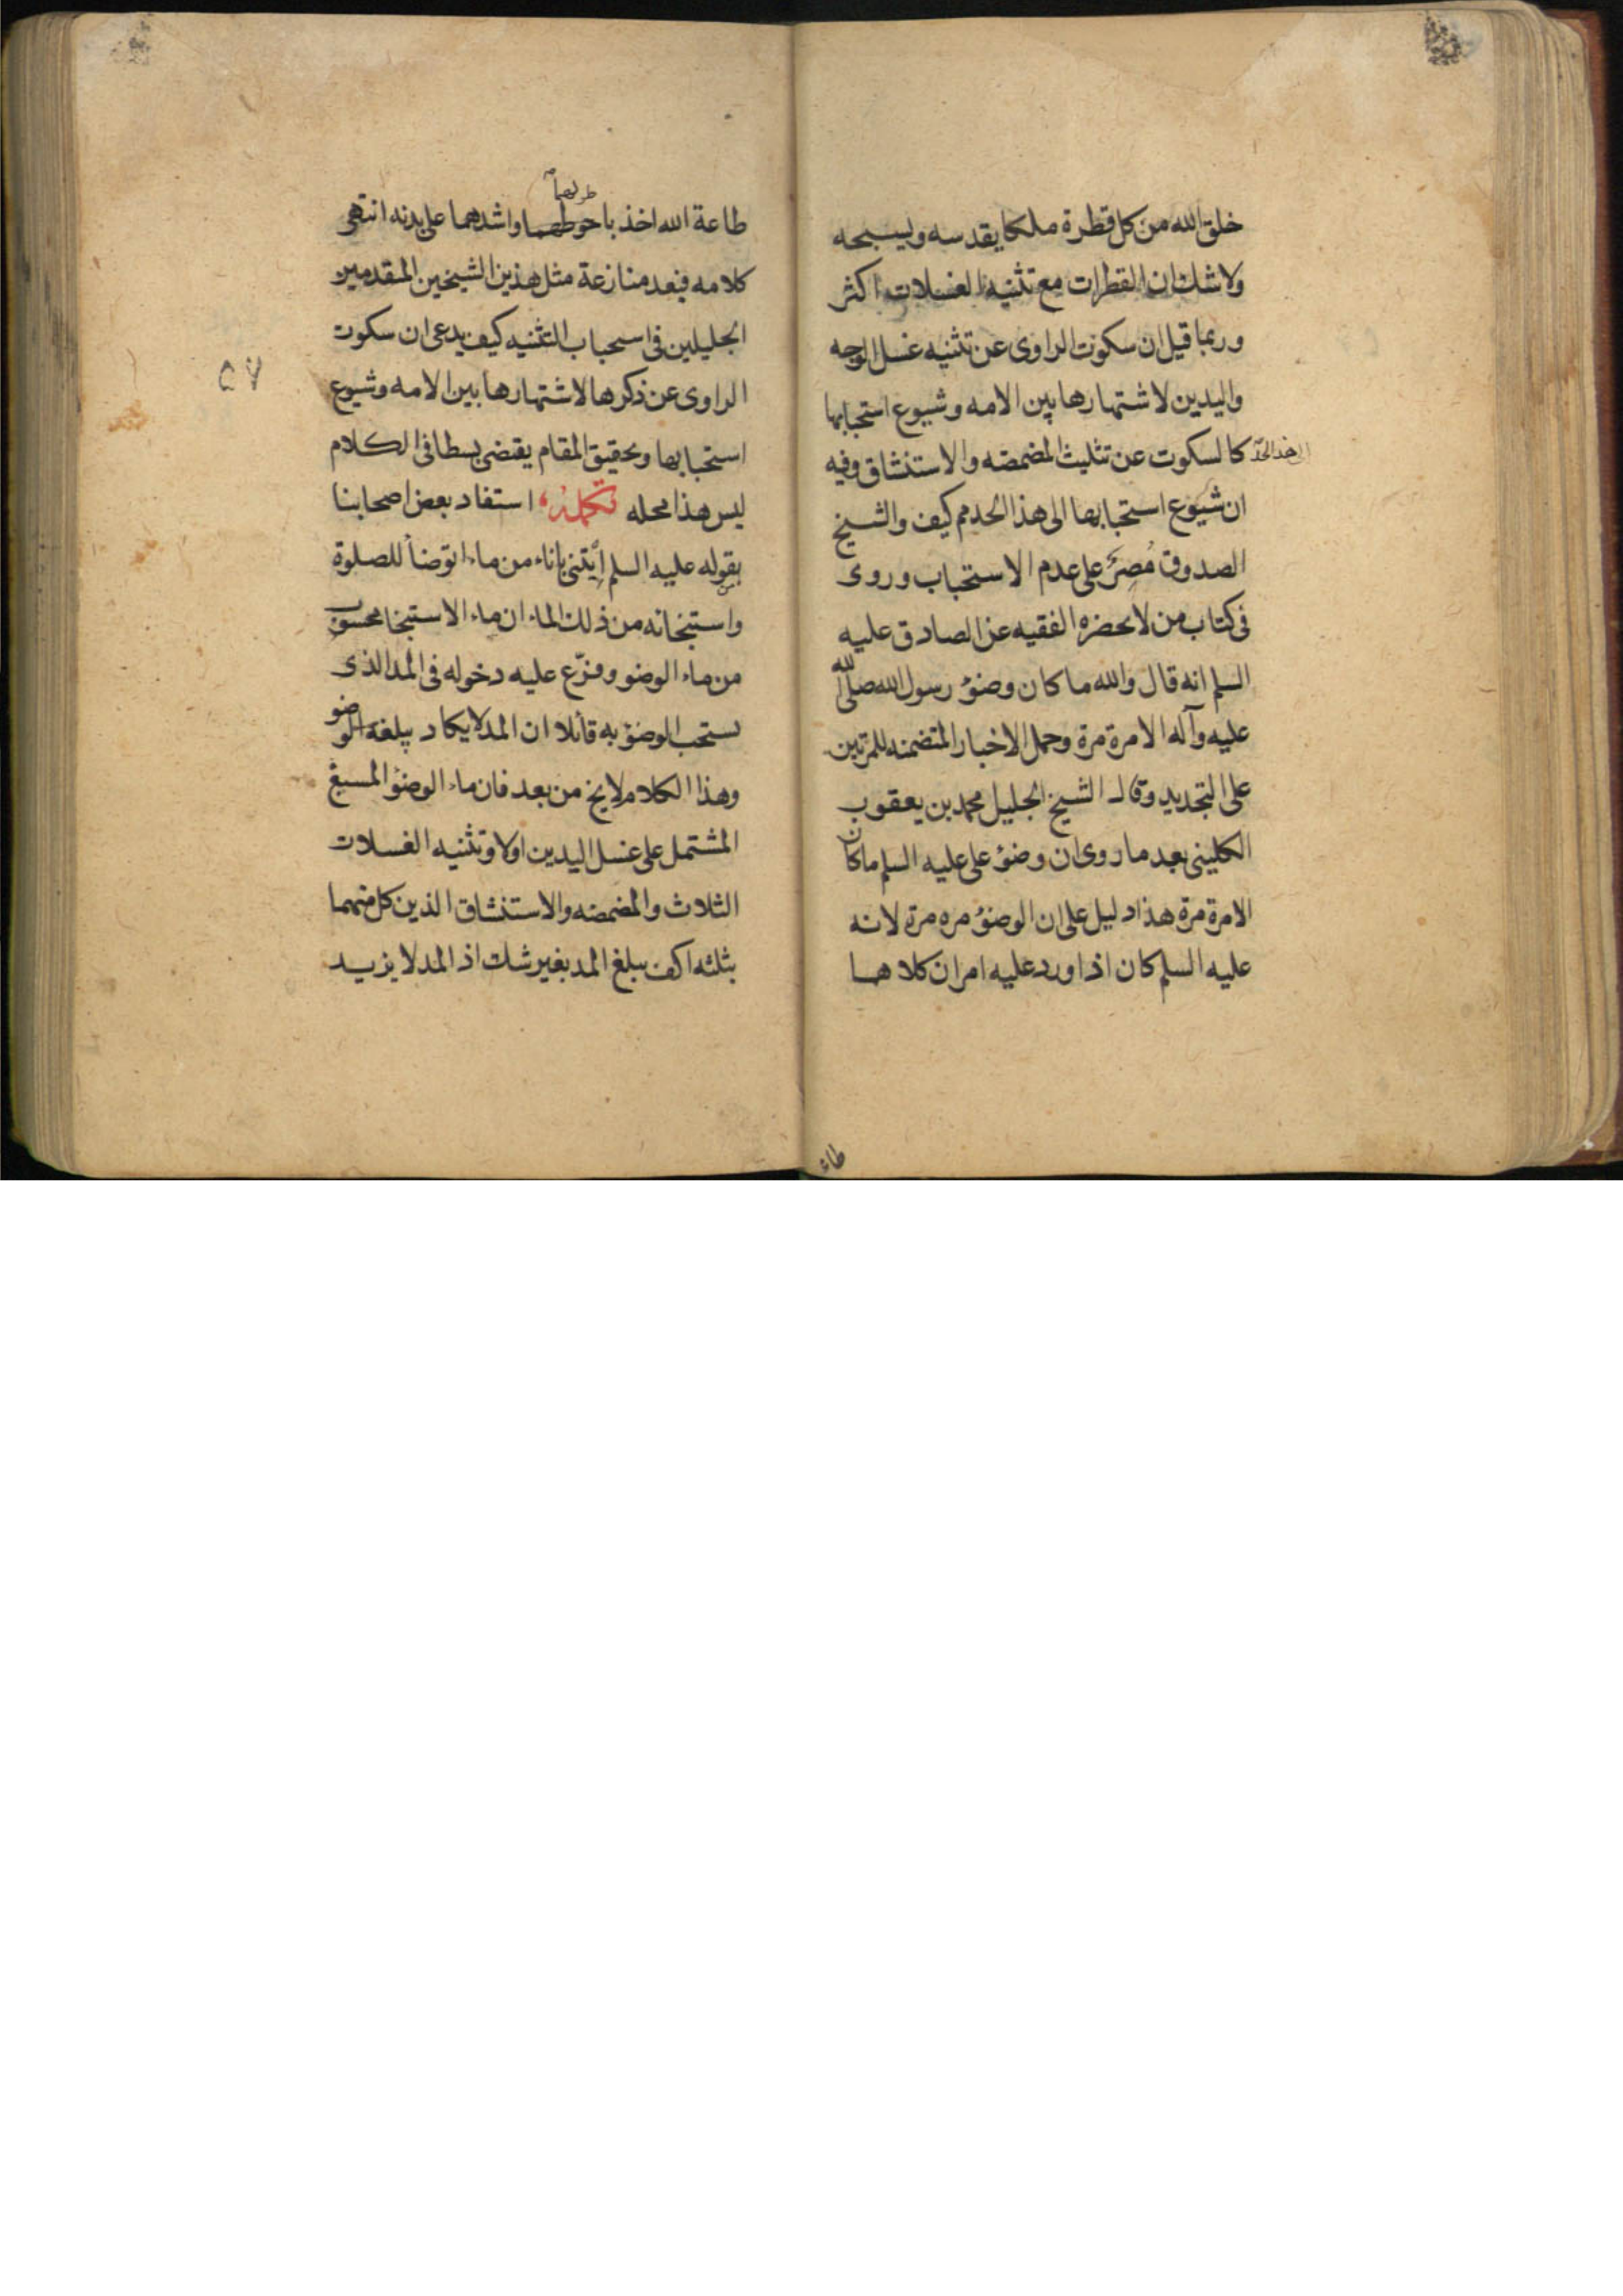 خلق الله من كل قطرة ملكا يقدسه ويسبحه
ولا شك ان القطرات مع تثنية الغسلات اكثر
وربما قيل ان سكوت الراوى عن تثنيه غسل الوجه
واليدين لاشتهارها بين الامه وشيوع استحبابها
الى هذا الحدّ
كالسكوت عن تثليث المضمضه والاستنشاق وفيه
ان شيوع استحبابها الى هذا الحد مم كيف والشيخ
الصدوق مُصِرّ على عدم الاستحباب وروى
فى كتاب من لا يحضره الفقيه عن الصادق عليه
السلم انه قال والله ما كان وضوُ رسول الله صلى الله
عليه وآله الا مرة مرة وحمل الاخبار المتضمنه للمرتين
على التجديد وقال الشيخ الجليل محمد بن يعقوب
الكلينى بعد ما روى ان وضوُ على عليه السلم ما كان
الا مرة مرة هذا دليل على ان الوضوُ مره مرة لانه
عليه السلم كان اذا ورد عليه امران كلاهما
طاعة
طاعة الله اخذ باحوطهما واشدهما على بدنه انتهى
كلامه فبعد منازعة مثل هذين الشيخين المتقدمين
الجليلين فى استحباب التثنيه كيف يدعى ان سكوت
الراوى عن ذكرها لاشتهارها بين الامه وشيوع
۵۷
استحبابها وتحقيق المقام يقتضى بسطا فى الكلام
ليس هذا محله تكملة استفاد بعض اصحابنا
بقوله عليه السلم ايتنى باناء من ماء اتوضأ للصلوة
واستنجائه من ذلك الماء ان ماء الاستنجا محسوب
من ماء الوضو وفرّع عليه دخوله فى المد الذى
يستحب الوضوُ به قائلا ان المد لا يكاد يبلغه الوضو
وهذا الكلام لا يخ من بعد فان ماء الوضوُ المسبغ
المشتمل على غسل اليدين اولا وتثنيه الغسلات
الثلاث والمضمضه والاستنشاق الذين كل منهما
بثلثه اكف يبلغ المد بغير شك اذ المد لا يزيد